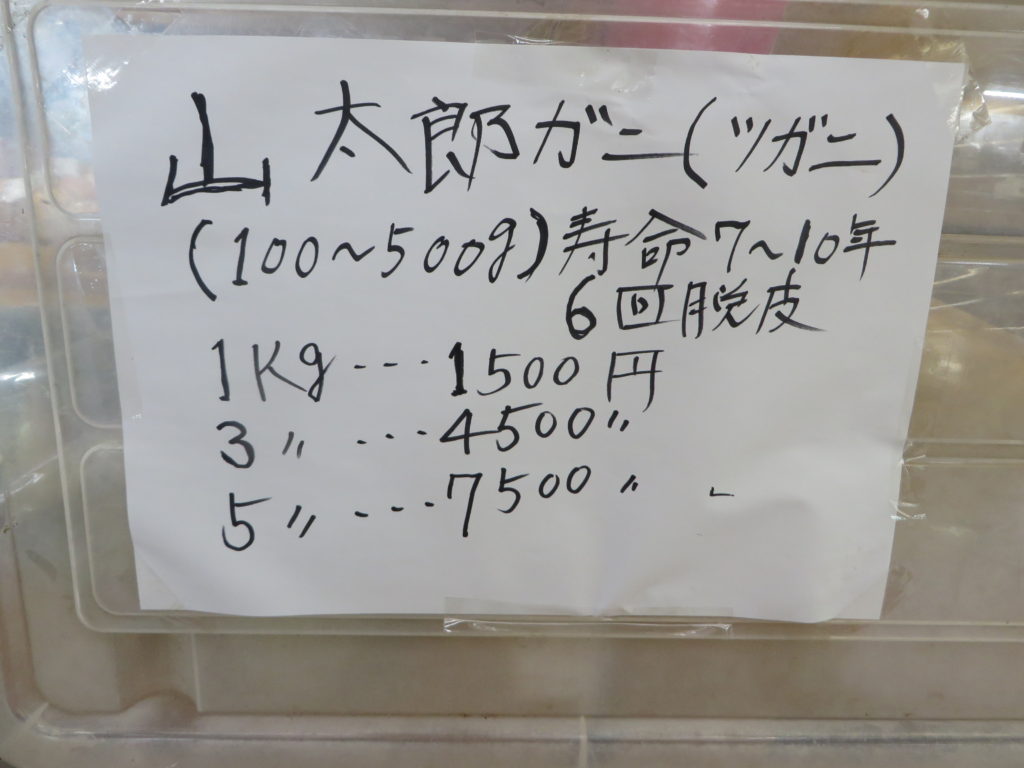 山太郎ガニ(ツガニ)
(100～500g)寿命7～10年
6回脱皮
1Kg---1500円
3〃---4500〃
5〃---7500〃